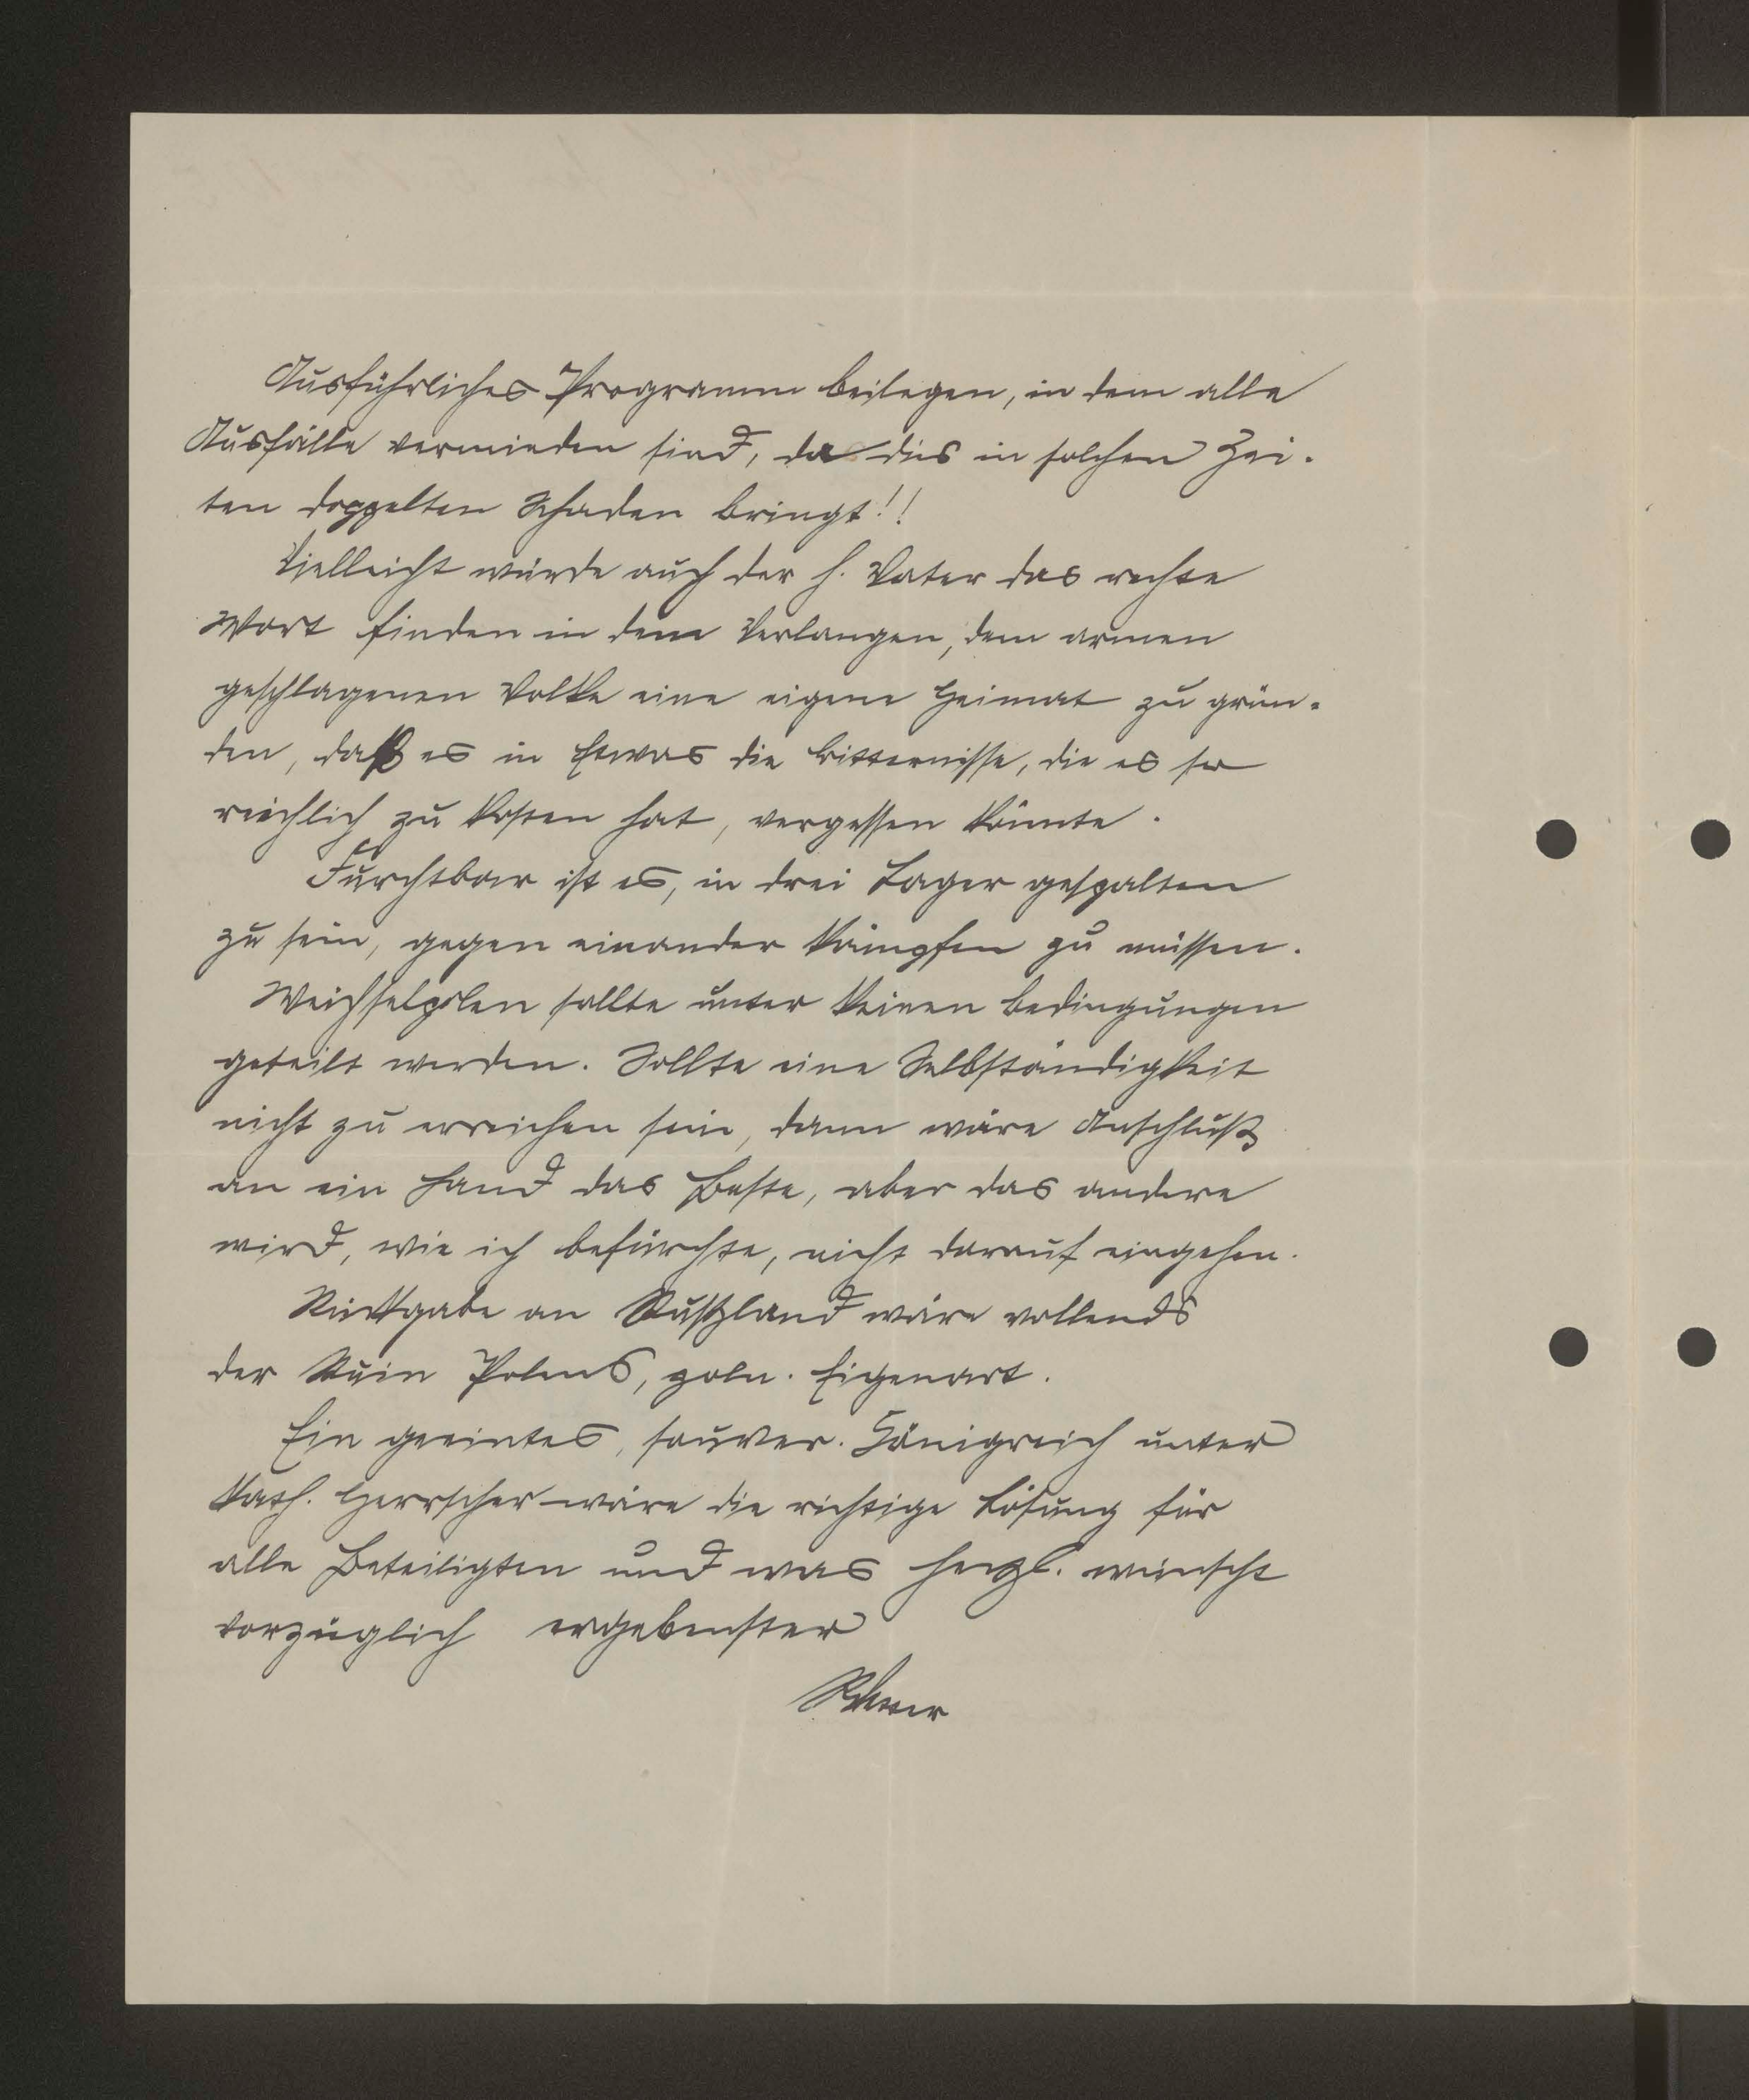 Ausführliches Programm beilegen, in dem alle
Ausfälle vermieden sind, da dies in solchen Zei-
ten doppelten Schaden bringt!!
Vielleicht würde auch der h. Vater das rechte
Wort finden in dem Verlangen, dem armen
geschlagenen Volke eine eigene Heimat zu grün-
den, daß es in Etwas die Bitternisse, die es so
reichlich zu kosten hat, vergessen könnte.
Furchtbar ist es, in drei Lager gespalten
zu sein, gegen einander kämpfen zu müssen.
Weichselpolen sollte unter keinen Bedingungen
geteilt werden. Sollte eine Selbständigkeit
nicht zu erreichen sein, dann wäre Anschluß
an ein Land das Beste, aber das andere
wird, wie ich befürchte, nicht darauf eingehen.
Rückgabe an Rußland wäre vollends
der Ruin Polens, poln. Eigenart.
Ein geeintes, souver. Königreich unter
kath. Herrscher wäre die richtige Lösung für
alle Beteiligten und was herzl. wünscht
vorzüglich ergebenster